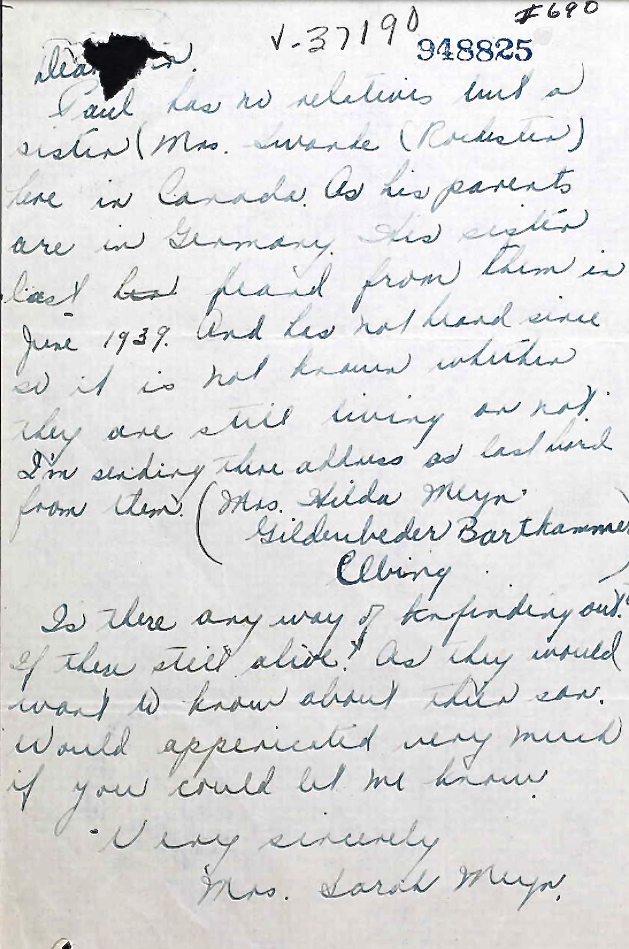 #690
V-37190
948825
Dear
Paul has no relatives but a
sister (Mrs. Swande (Rochester)
here in Canada. As his parents
are in Germany. His sister
last heard from them in
June 1939. And has not heard since
so it is not known whether
they are still living or not.
I'm sending there address as last hard
from them. (Mrs. Hilda Meyn.
Gildenbeder Barthammer
Elbing
Is there any way of finding out?
If there still alive? As they would
want to know about their son.
Would appericated very much
if you could let me know.
Very sincerely
Mrs. Sarah Meyn.